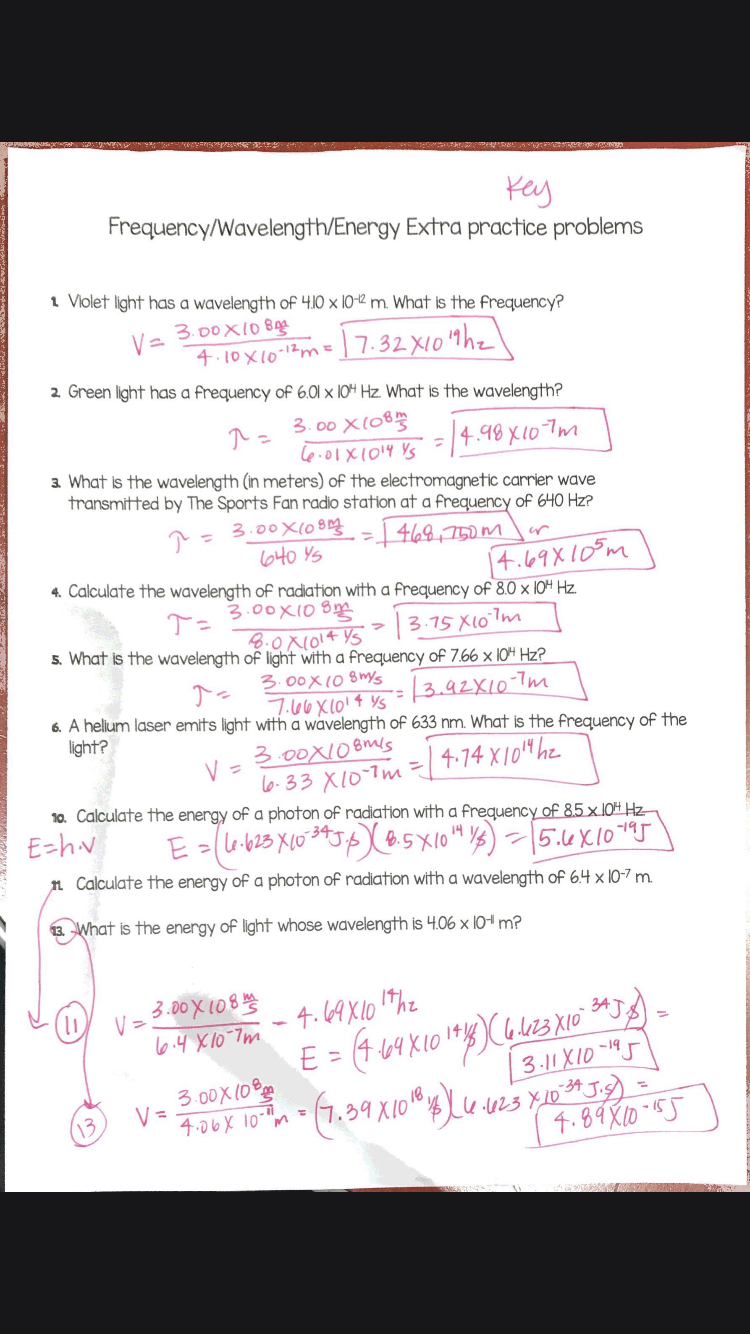 Key
Frequency/Wavelength/Energy Extra practice problems
1. Violet light has a wavelength of 4.10 x 10⁻¹² m. What is the frequency?
V = 3.00X10⁸ m/s / 4.10X10⁻¹²m = 7.32X10¹⁹hz
2. Green light has a frequency of 6.01 x 10¹⁴ Hz. What is the wavelength?
λ = 3.00X10⁸ m/s / 6.01X10¹⁴ 1/s = 4.98X10⁻⁷m
3. What is the wavelength (in meters) of the electromagnetic carrier wave
transmitted by The Sports Fan radio station at a frequency of 640 Hz?
λ = 3.00X10⁸ m/s / 640 1/s = 468,750m or
4.69X10⁵m
4. Calculate the wavelength of radiation with a frequency of 8.0 x 10¹⁴ Hz.
λ = 3.00X10⁸ m/s / 8.0X10¹⁴ 1/s = 3.75X10⁻⁷m
5. What is the wavelength of light with a frequency of 7.66 x 10¹⁴ Hz?
λ = 3.00X10⁸m/s / 7.66X10¹⁴ 1/s = 3.92X10⁻⁷m
6. A helium laser emits light with a wavelength of 633 nm. What is the frequency of the
light?
V = 3.00X10⁸m/s / 6.33X10⁻⁷m = 4.74X10¹⁴hz
10. Calculate the energy of a photon of radiation with a frequency of 8.5 x 10¹⁴ Hz
E=h·V E = (6.623X10⁻³⁴J·s)(8.5X10¹⁴ 1/s) = 5.6X10⁻¹⁹J
11. Calculate the energy of a photon of radiation with a wavelength of 6.4 x 10⁻⁷ m.
13. What is the energy of light whose wavelength is 4.06 x 10⁻¹¹ m?
11 V = 3.00X10⁸ m/s / 6.4X10⁻⁷m - 4.69X10¹⁴hz
E = (4.69X10¹⁴ 1/s)(6.623X10⁻³⁴J·s) =
3.11X10⁻¹⁹J
13 V = 3.00X10⁸ m/s / 4.06X10⁻¹¹m = (7.39X10¹⁸ 1/s)(6.623X10⁻³⁴J·s) =
4.89X10⁻¹⁵J